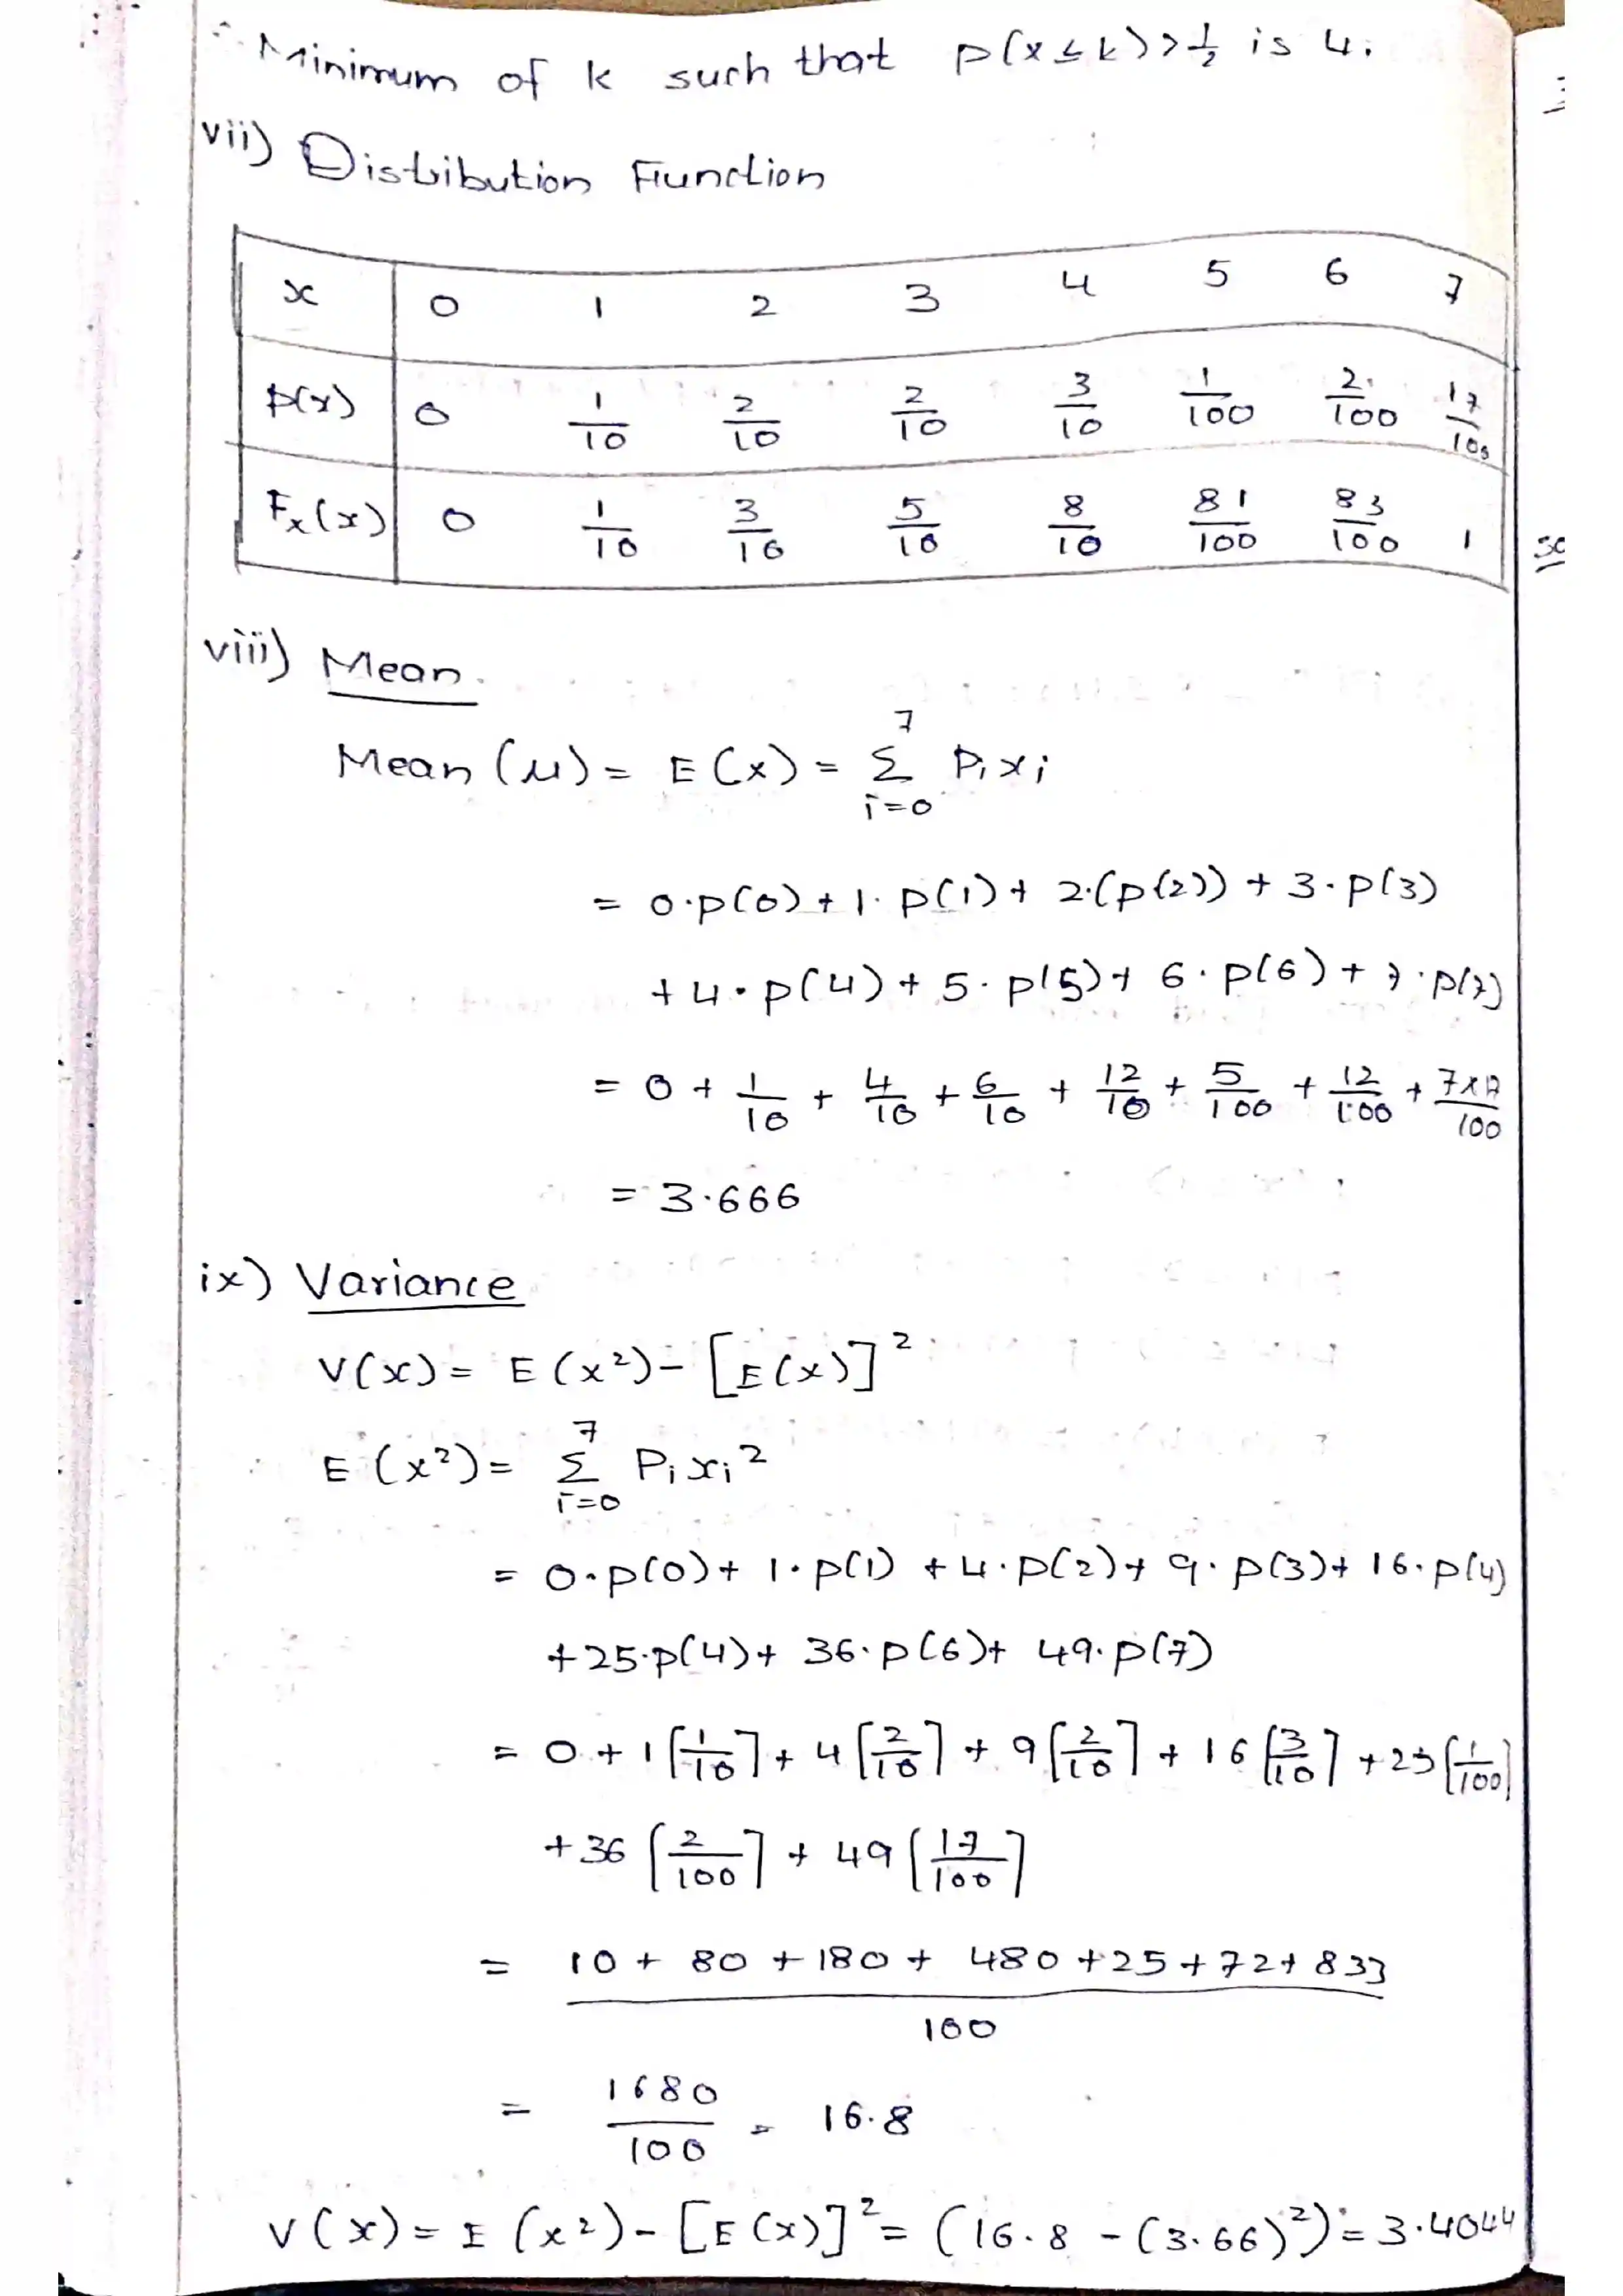 ∴ Minimum of k such that p(x ≤ k) > 1/2 is 4.
vii) Distribution Function
x 0 1 2 3 4 5 6 7
p(x) 0 1/10 2/10 2/10 3/10 1/100 2/100 17/100
Fx(x) 0 1/10 3/10 5/10 8/10 81/100 83/100 1
viii) Mean.
Mean (μ) = E(x) = Σ_{i=0}^{7} Pi xi
= 0·p(0) + 1·p(1) + 2·(p(2)) + 3·p(3)
+ 4·p(4) + 5·p(5) + 6·p(6) + 7·p(7)
= 0 + 1/10 + 4/10 + 6/10 + 12/10 + 5/100 + 12/100 + 7×17/100
= 3.666
ix) Variance
V(x) = E(x²) - [E(x)]²
E(x²) = Σ_{i=0}^{7} Pi xi²
= 0·p(0) + 1·p(1) + 4·p(2) + 9·p(3) + 16·p(4)
+25·p(4) + 36·p(6) + 49·p(7)
= 0 + 1[1/10] + 4[2/10] + 9[2/10] + 16[3/10] + 25[1/100]
+ 36[2/100] + 49[17/100]
= 10 + 80 + 180 + 480 + 25 + 72 + 833 / 100
= 1680/100 = 16.8
V(x) = E(x²) - [E(x)]² = (16.8 - (3.66)²) = 3.4044